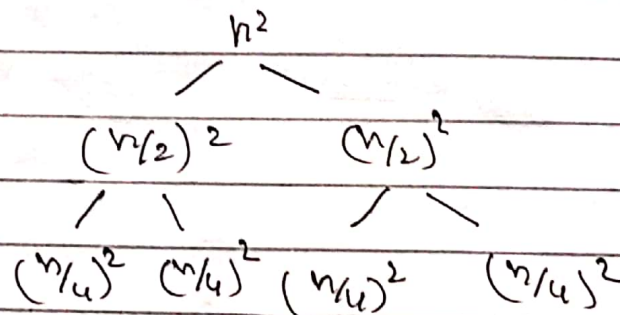 n²
(n/2)² (n/2)²
(n/4)² (n/4)² (n/4)² (n/4)²